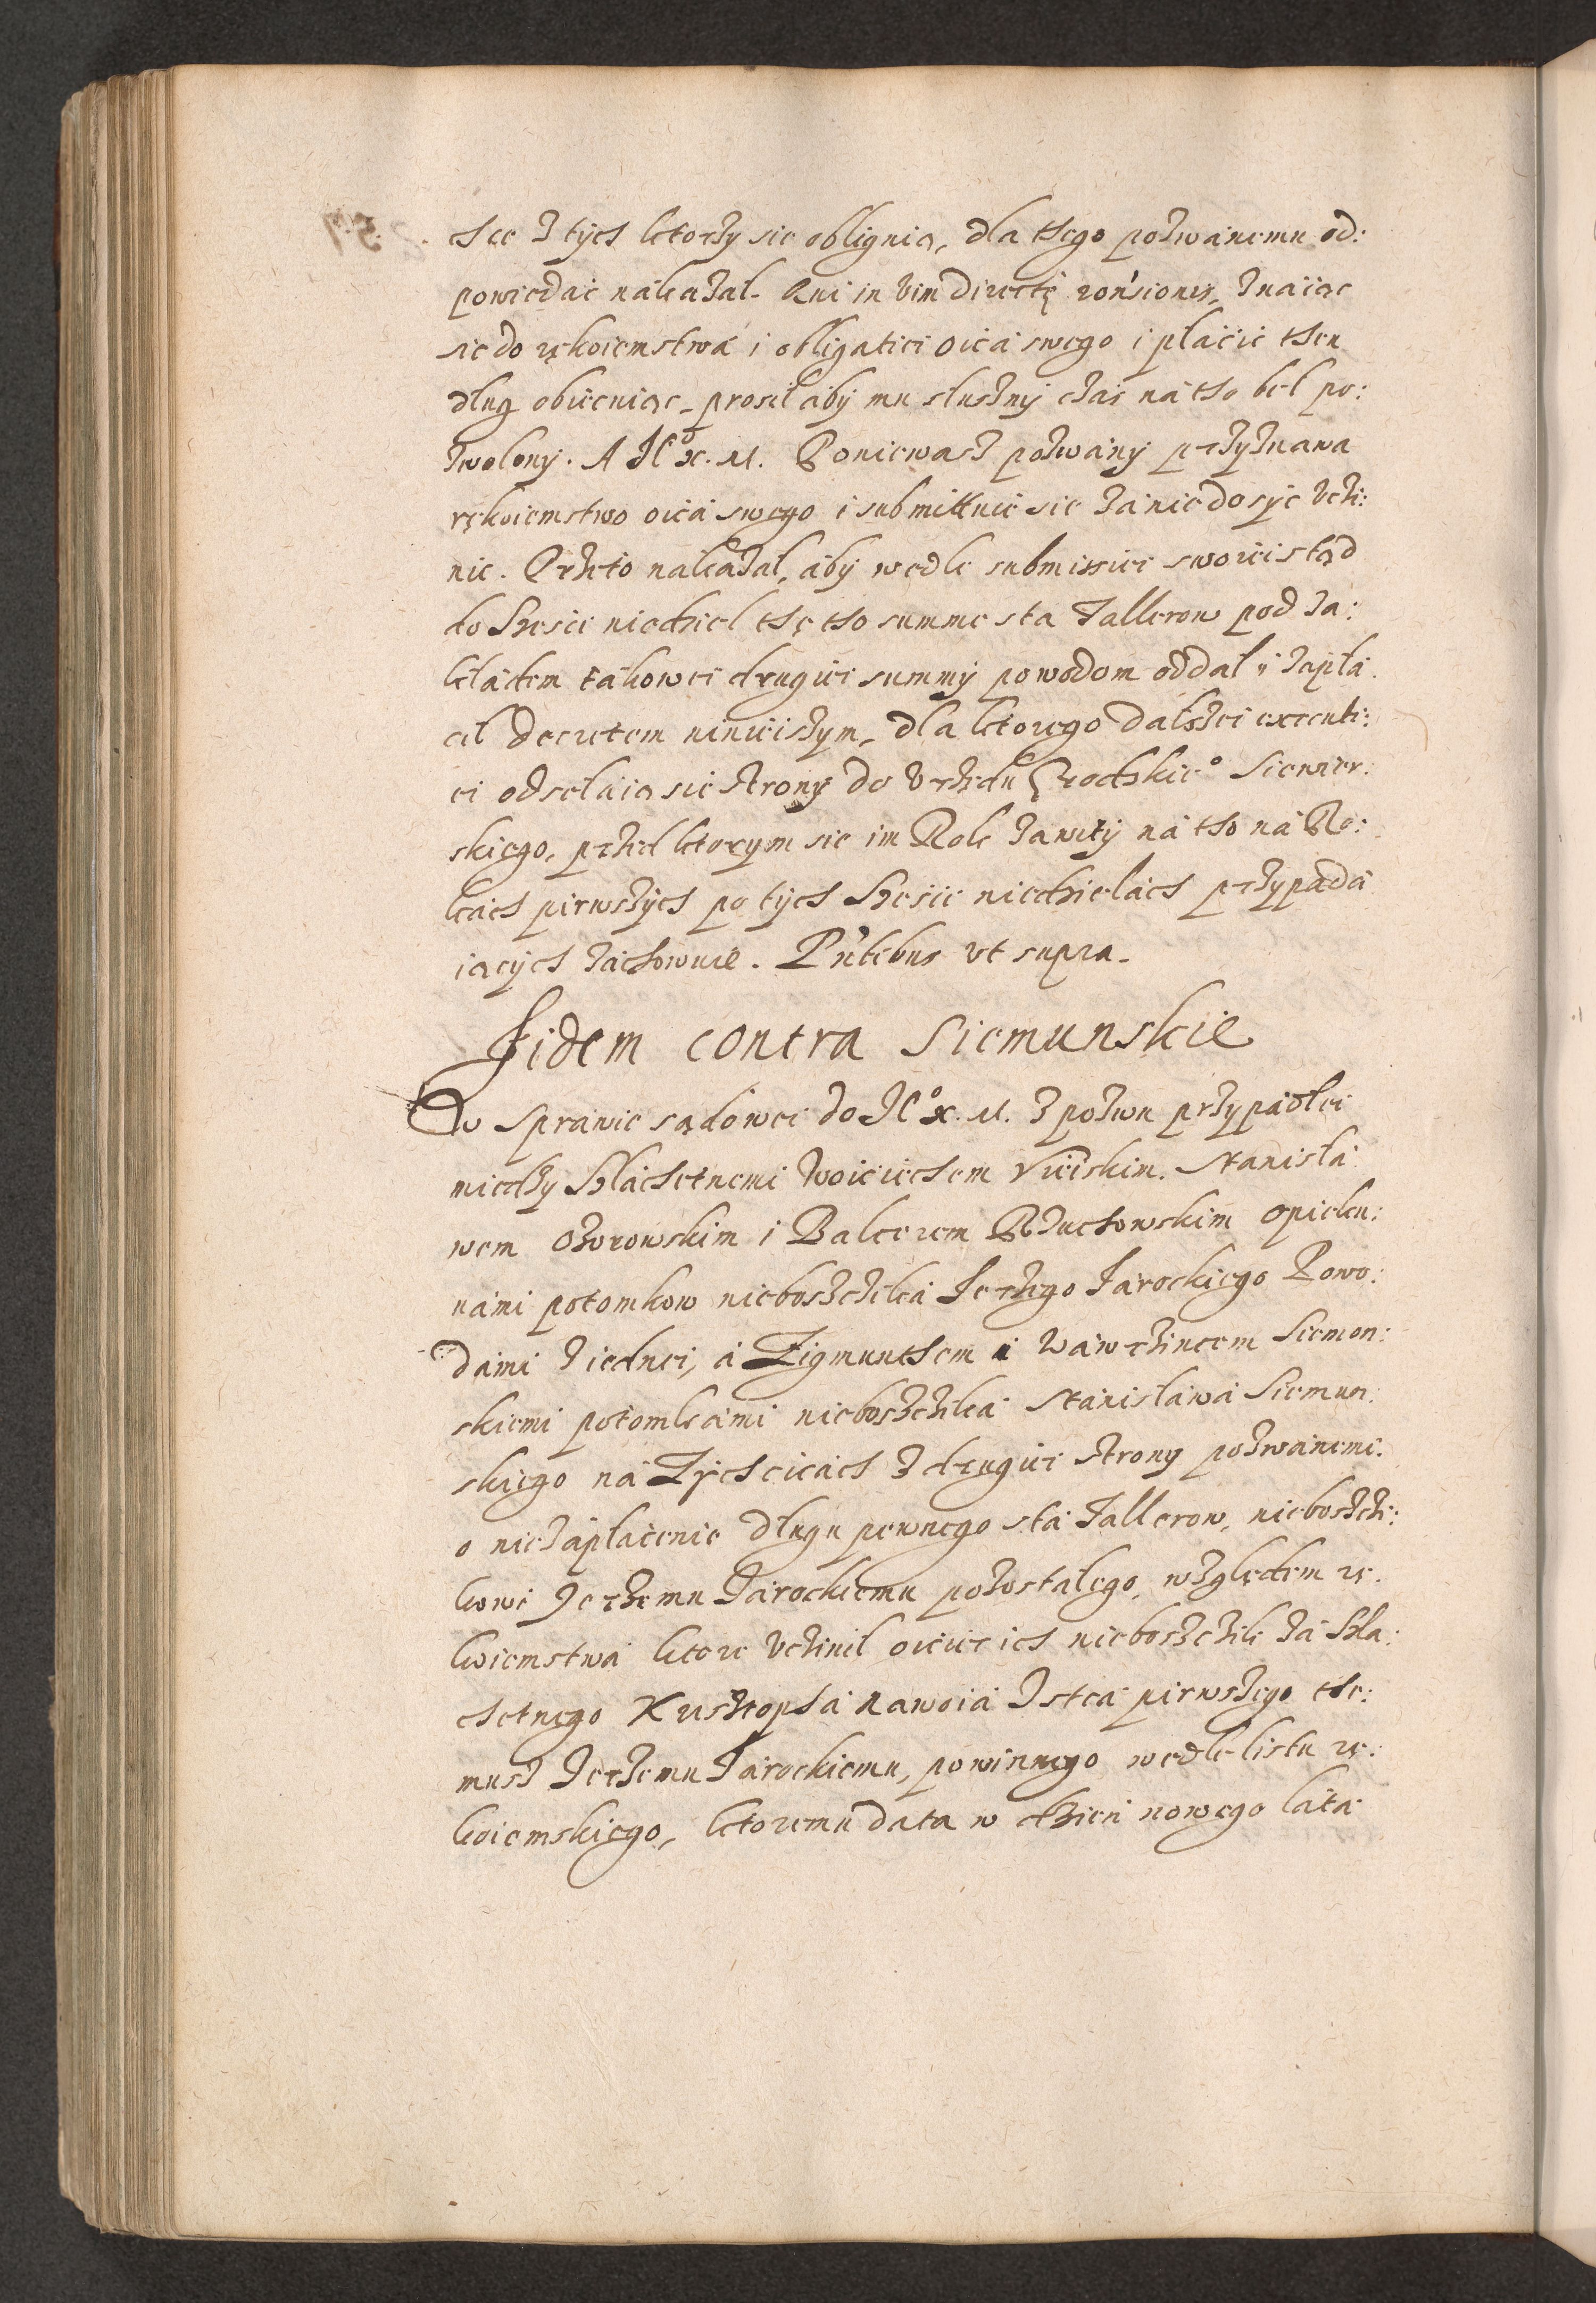 chce z tych ktorzy sie obliguią, dla thego pozwanemu od:
powiedać nakazał. Qui in vim directę rońsionis, znaiąc
sie do rękoiemstwa i obligatiei oica swego i płacic then
dług obiecuiąc, prosił aby mu słuszny czas na tho beł po:
zwolony. A Jº X. M. Poniewasz pozwany przyznawa
rękoiemstwo oica swego i submittuie sie za nie dosyc vczi:
nic. Przeto nakazał, aby wedle submissiei swoiei stąd
do szesci niedziel thę tho summe sta Tallerow pod za:
kładem takowei drugiei summy powodom oddał i zapła
cił decretem ninieiszym, dla ktorego dalszei executi:
ei odsełaią sie strony do Vrzędu Grodzkieº Siewier:
skiego, przed ktorym sie im Rok zawity na tho na Ro:
kach pirwszych po tych szesci niedzielach przypada
iących zachowuie. Pñtebus vt supra.
Iidem contra Siemunskie
W sprawie sądowei do Jº X. M. z pozwu przypadłei
miedzy szlachetnemi Woiciechem Vieiskim. Stanisła
wem Ozorowskim i Balcerem Rzuchowskim opieku:
nami potomkow nieboszczika Jerzego Jarockiego Powo:
dami z iednei, a Zigmunthem i Wawrzincem Siemon:
skiemi potomkami nieboszczika Stanisława Siemun:
skiego na Zychcicach z drugiei strony pozwanemi.
o niezapłacenie długu pewnego sta Tallerow, nieboszczi:
kowi Jerzemu Jarockiemu pozostałego, względem rę:
koiemstwa ktore vczinił ociec ich nieboszczik za szla:
chetnego Krisztopha Nawoia Istca pirwszego the:
musz Jerzemu Jarockiemu, powinnego wedle listu rę:
koiemskiego, ktoremu data w dzien nowego lata